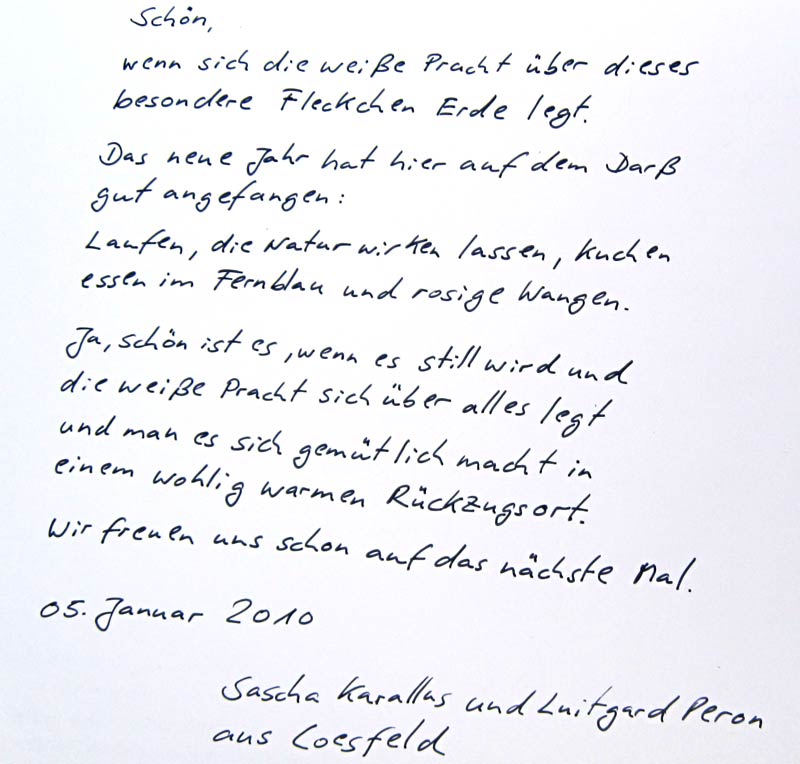 Schön,
wenn sich die weiße Pracht über dieses
besondere Fleckchen Erde legt.
Das neue Jahr hat hier auf dem Darß
gut angefangen:
Laufen, die Natur wirken lassen, Kuchen
essen im Fernblau und rosige Wangen.
Ja, schön ist es, wenn es still wird und
die weiße Pracht sich über alles legt
und man es sich gemütlich macht in
einem wohlig warmen Rückzugsort.
Wir freuen uns schon auf das nächste Mal.
05. Januar 2010
Sascha Karallus und Luitgard Peron
aus Coesfeld